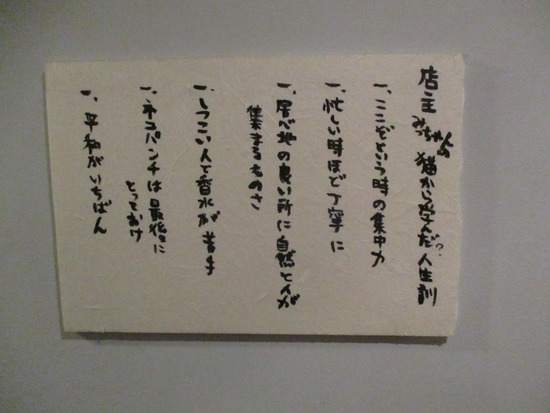 店主みっちゃんの猫から学んだ?人生訓
一、ここぞという時の集中力
一、忙しい時ほど丁寧に
一、居心地の良い所に自然と人が
集まるものさ
一、しつこい人と香水が苦手
一、ネコパンチは最後に
とっておけ
一、平和がいちばん